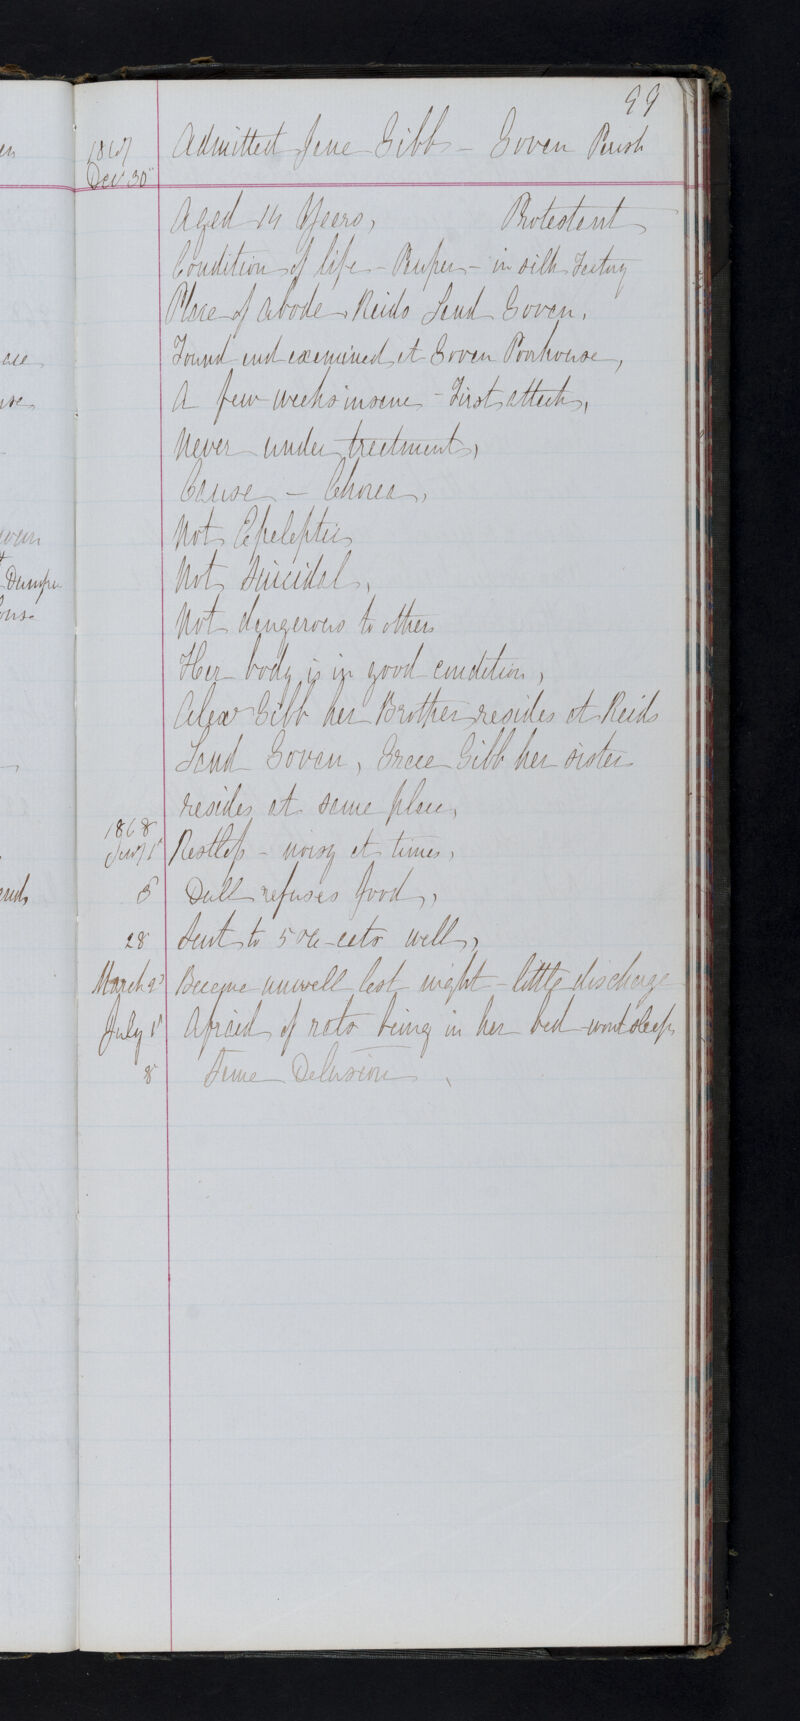 99
1867
Decr 30th Admitted Jane Gibb - Govan Parish
Aged 14 Years, Protestant
Condition of life - Pauper - in silk Factory
Place of abode, Reids Land Govan,
Found and examined at Govan Poorhouse,
A few weeks insane - First attack,
Never under treatment,
Cause - Chorea,
Not Epeleptic
Not Suicidal,
Not dangerous to others
Her body is in good condition,
Alexr Gibb her Brother resides at Reids
Land Govan, Grace Gibb her sister
resides at same place,
1868
Jany 1st Restless - noisy at times,
5 Dull refuses food,
28 Sent to 5 - eats well,
March 2d Became unwell last night - little discharge
July 1st Afraid of rats being in her bed - wont sleep
8 Same Delusion,